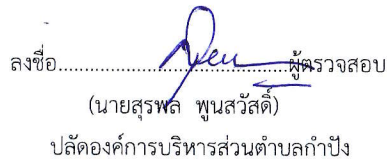 ลงชื่อ........................................ผู้ตรวจสอบ
(นายสุรพล พูนสวัสดิ์)
ปลัดองค์การบริหารส่วนตำบลกำปัง